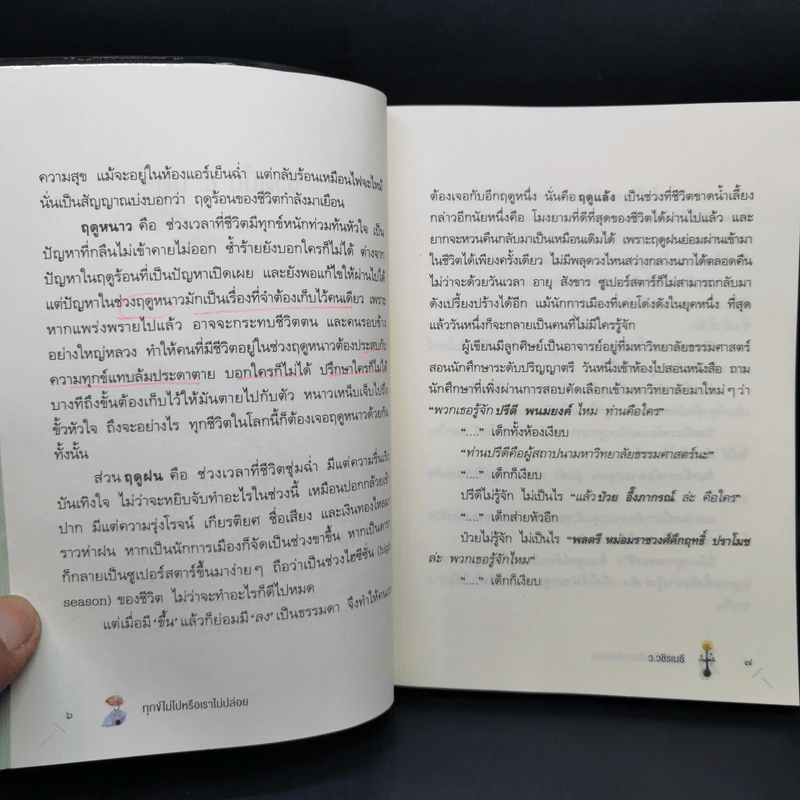 ความสุข แม้จะอยู่ในห้องแอร์เย็นฉ่ำ แต่กลับร้อนเหมือนไฟจะไหม้
นั่นเป็นสัญญาณบ่งบอกว่า ฤดูร้อนของชีวิตกำลังมาเยือน
ฤดูหนาว คือ ช่วงเวลาที่ชีวิตมีทุกข์หนักท่วมท้นหัวใจ เป็น
ปัญหาที่กลืนไม่เข้าคายไม่ออก ซ้ำร้ายยังบอกใครก็ไม่ได้ ต่างจาก
ปัญหาในฤดูร้อนที่เป็นปัญหาเปิดเผย และยังพอแก้ไขให้ผ่านไปได้
แต่ปัญหาในช่วงฤดูหนาวมักเป็นเรื่องที่จำต้องเก็บไว้คนเดียว เพราะ
หากแพร่งพรายไปแล้ว อาจจะกระทบชีวิตตน และคนรอบข้าง
อย่างใหญ่หลวง ทำให้คนที่มีชีวิตอยู่ในช่วงฤดูหนาวต้องประสบกับ
ความทุกข์แทบล้มประดาตาย บอกใครก็ไม่ได้ ปรึกษาใครก็ไม่ได้
บางทีถึงขั้นต้องเก็บไว้ให้มันตายไปกับตัว หนาวเหน็บเจ็บไปถึง
ขั้วหัวใจ ถึงจะอย่างไร ทุกชีวิตในโลกนี้ก็ต้องเจอฤดูหนาวด้วยกัน
ทั้งนั้น
ส่วน ฤดูฝน คือ ช่วงเวลาที่ชีวิตชุ่มฉ่ำ มีแต่ความรื่นเริง
บันเทิงใจ ไม่ว่าจะหยิบจับทำอะไรในช่วงนี้ เหมือนปอกกล้วยเข้า
ปาก มีแต่ความรุ่งโรจน์ เกียรติยศ ชื่อเสียง และเงินทองไหลมา
ราวห่าฝน หากเป็นนักการเมืองก็จัดเป็นช่วงขาขึ้น หากเป็นดารา
ก็กลายเป็นซูเปอร์สตาร์ขึ้นมาง่ายๆ ถือว่าเป็นช่วงไฮซีซั่น (high
season) ของชีวิต ไม่ว่าจะทำอะไรก็ดีไปหมด
แต่เมื่อมี ‘ขึ้น’ แล้วก็ย่อมมี ‘ลง’ เป็นธรรมดา จึงทำให้คนเรา
๖
ทุกข์ไม่ไปหรือเราไม่ปล่อย
ต้องเจอกับอีกฤดูหนึ่ง นั่นคือ ฤดูแล้ง เป็นช่วงที่ชีวิตขาดน้ำเลี้ยง
กล่าวอีกนัยหนึ่งคือ โมงยามที่ดีที่สุดของชีวิตได้ผ่านไปแล้ว และ
ยากจะหวนคืนกลับมาเป็นเหมือนเดิมได้ เพราะฤดูฝนย่อมผ่านเข้ามา
ในชีวิตได้เพียงครั้งเดียว ไม่มีพลุดวงไหนสว่างกลางนภาได้ตลอดคืน
ไม่ว่าจะด้วยวันเวลา อายุ สังขาร ซูเปอร์สตาร์ก็ไม่สามารถกลับมา
ดังเปรี้ยงปร้างได้อีก แม้นักการเมืองที่เคยโด่งดังในยุคหนึ่ง ที่สุด
แล้ววันหนึ่งก็จะกลายเป็นคนที่ไม่มีใครรู้จัก
ผู้เขียนมีลูกศิษย์เป็นอาจารย์อยู่ที่มหาวิทยาลัยธรรมศาสตร์
สอนนักศึกษาระดับปริญญาตรี วันหนึ่งเข้าห้องไปสอนหนังสือ ถาม
นักศึกษาที่เพิ่งผ่านการสอบคัดเลือกเข้ามหาวิทยาลัยมาใหม่ๆ ว่า
“พวกเธอรู้จัก ปรีดี พนมยงค์ ไหม ท่านคือใคร”
“....” เด็กทั้งห้องเงียบ
“ท่านปรีดีคือผู้สถาปนามหาวิทยาลัยธรรมศาสตร์นะ”
“....” เด็กก็เงียบ
ปรีดีไม่รู้จัก ไม่เป็นไร “แล้ว ป๋วย อึ๊งภากรณ์ ล่ะ คือใคร”
“....” เด็กส่ายหัวอีก
ป๋วยไม่รู้จัก ไม่เป็นไร “พลตรี หม่อมราชวงศ์คึกฤทธิ์ ปราโมช
ล่ะ พวกเธอรู้จักไหม”
“....” เด็กก็เงียบ
ว.วชิรเมธี
๗